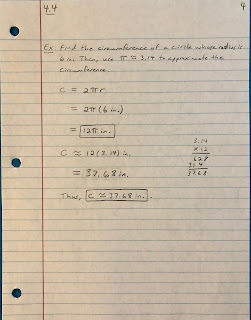 4.4
4
Ex: Find the circumference of a circle whose radius is
6 in. Then, use π ≈ 3.14 to approximate the
circumference.
C = 2πr
= 2π(6 in.)
= 12π in.
C ≈ 12(3.14) in.
= 37.68 in.
3.14
x 12
628
314
37.68
Thus, C ≈ 37.68 in.